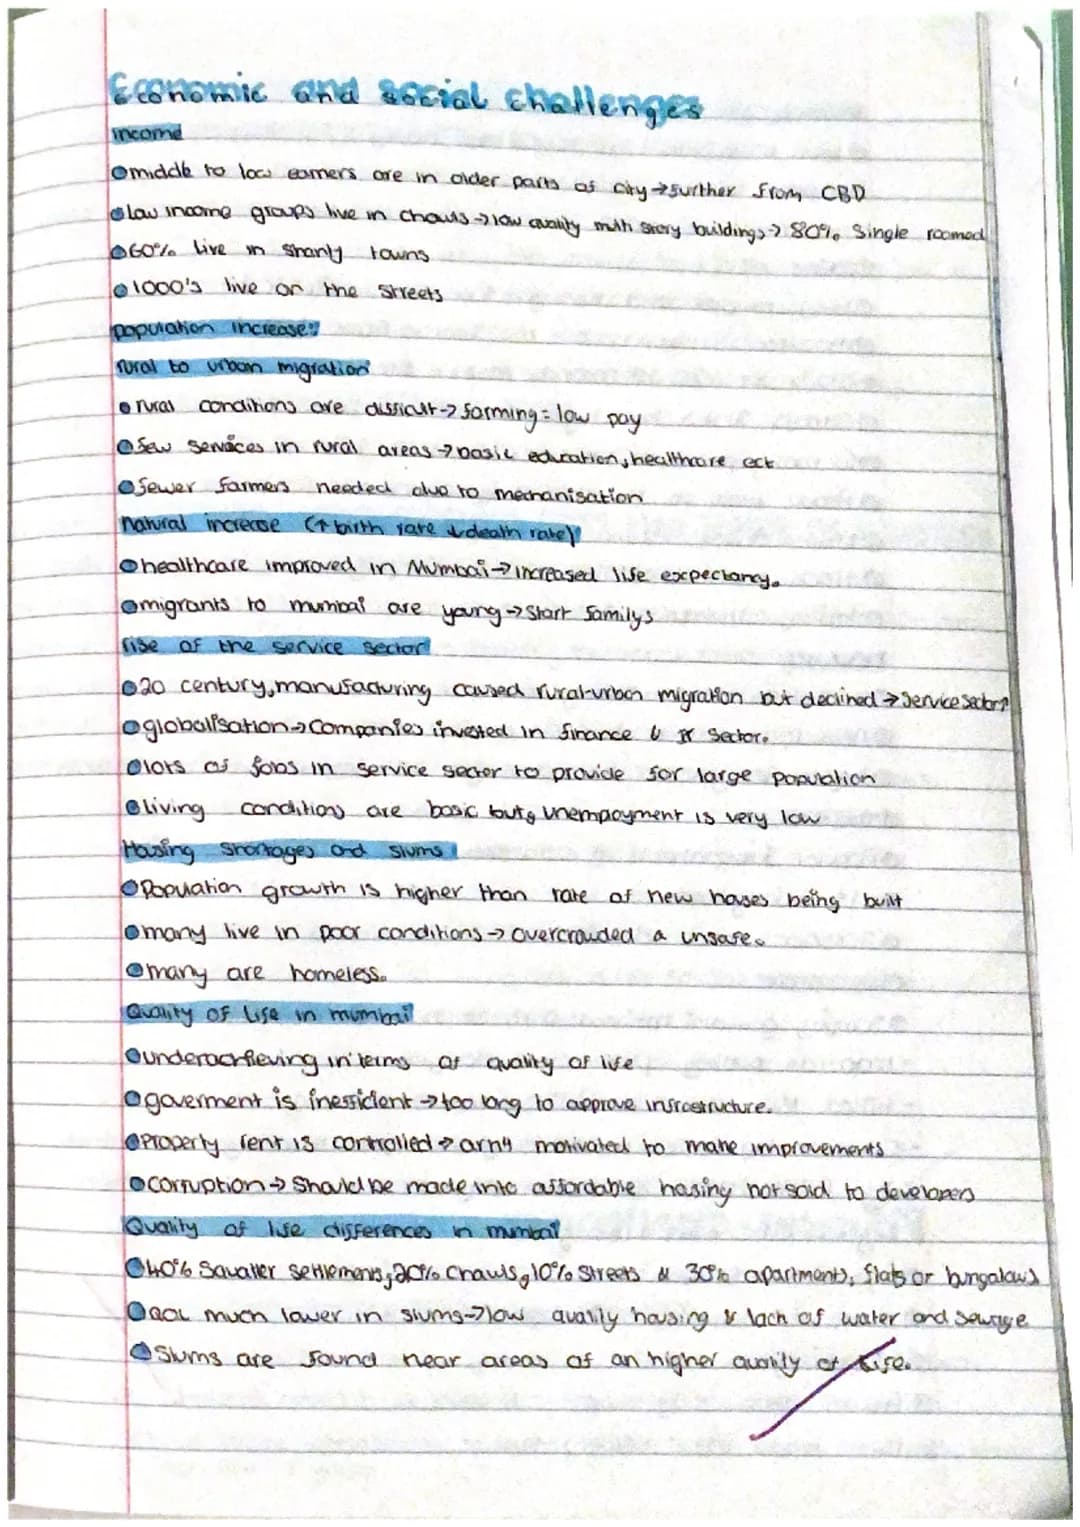 Economic and social challenges
income
middle to low earners are in older parts of city → further from CBD
low income groups live in chawls → low quality multi story buildings → 80% single roomed
60% live in shanty towns
1000's live on the streets
population increase:
rural to urban migration
rural conditions are difficult → farming = low pay
few services in rural areas → basic education, healthcare ect
fewer farmers needed due to mechanisation
natural increase (↑ birth rate ↓ death rate)
healthcare improved in Mumbai → increased life expectancy.
migrants to mumbai are young → start familys
rise of the service sector
20 century, manufacturing caused rural-urban migration but declined → service sector↑
globalisation → companies invested in finance & IT sector.
lots of jobs in service sector to provide for large population
living conditions are basic but, unempoyment is very low
Housing shortages and slums
Population growth is higher than rate of new houses being built
many live in poor conditions → overcrowded & unsafe.
many are homeless.
Quality of life in mumbai
underachieving in terms of quality of life
goverment is inefficient → too long to approve infrastructure.
Property rent is controlled → arnt motivated to make improvements
corruption → should be made into affordable hosing not sold to developers
Quality of life differences in mumbai
40% Squatter settlements, 20% Chawls, 10% Streets & 30% apartments, flats or bungalows
QOL much lower in slums → low quality housing & lack of water and sewage
Slums are found near areas of an higher quality of life.